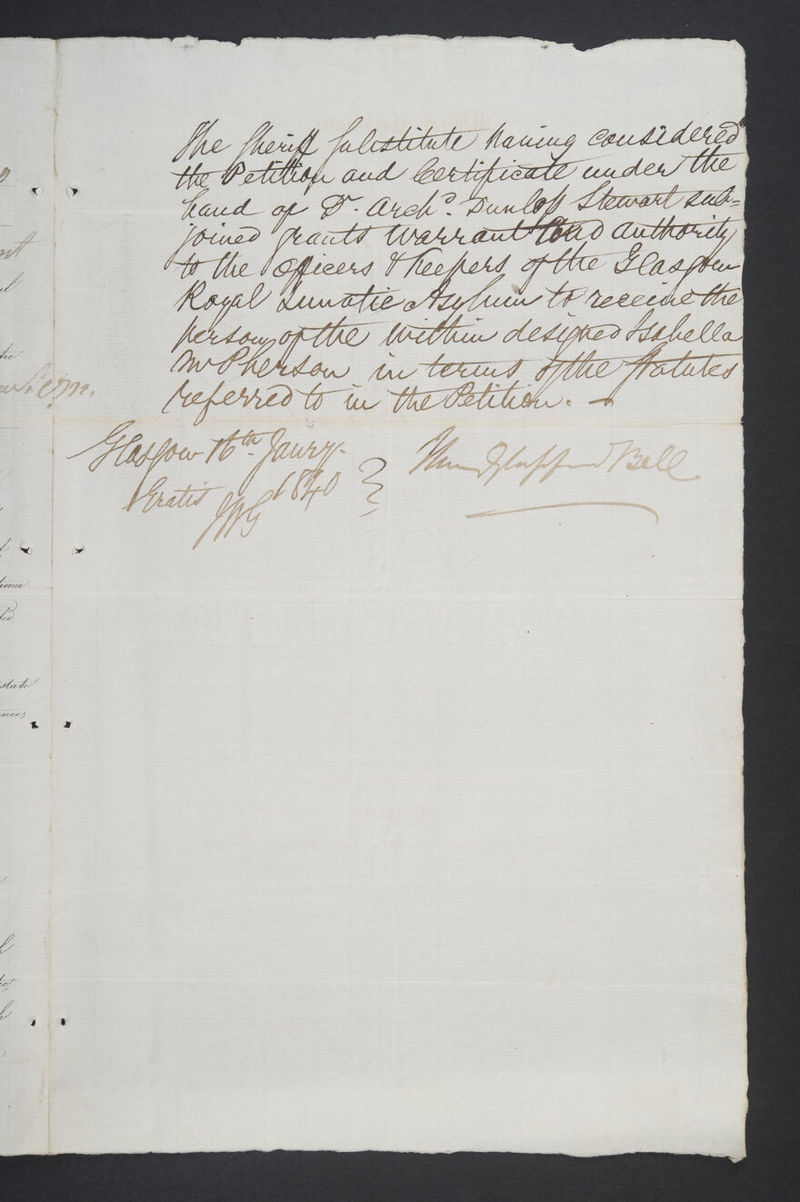 The Sheriff Substitute having considered
the Petition and Certificate under the
hand of Dr. Archd. Dunlop Stewart sub=
joined grants Warrant and authority
to the Officers & Keepers of the Glasgow
Royal Lunatic Asylum to receive the
person of the within designed Isabella
McPherson in terms of the Statutes
referred to in the Petition. –
Glasgow 16th Jaury.
1840
Gratis
Bell